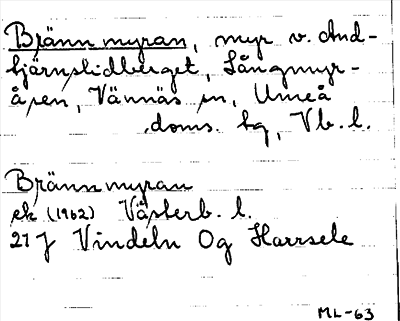 Brännmyran, myr v. And-
tjärnslidberget, Långmyr-
åsen, Vännäs sn, Umeå
doms. hg, Vb. l.
Brännmyran
ek (1962) Västerb. l.
21 J Vindeln Og Harrsele
ML-63